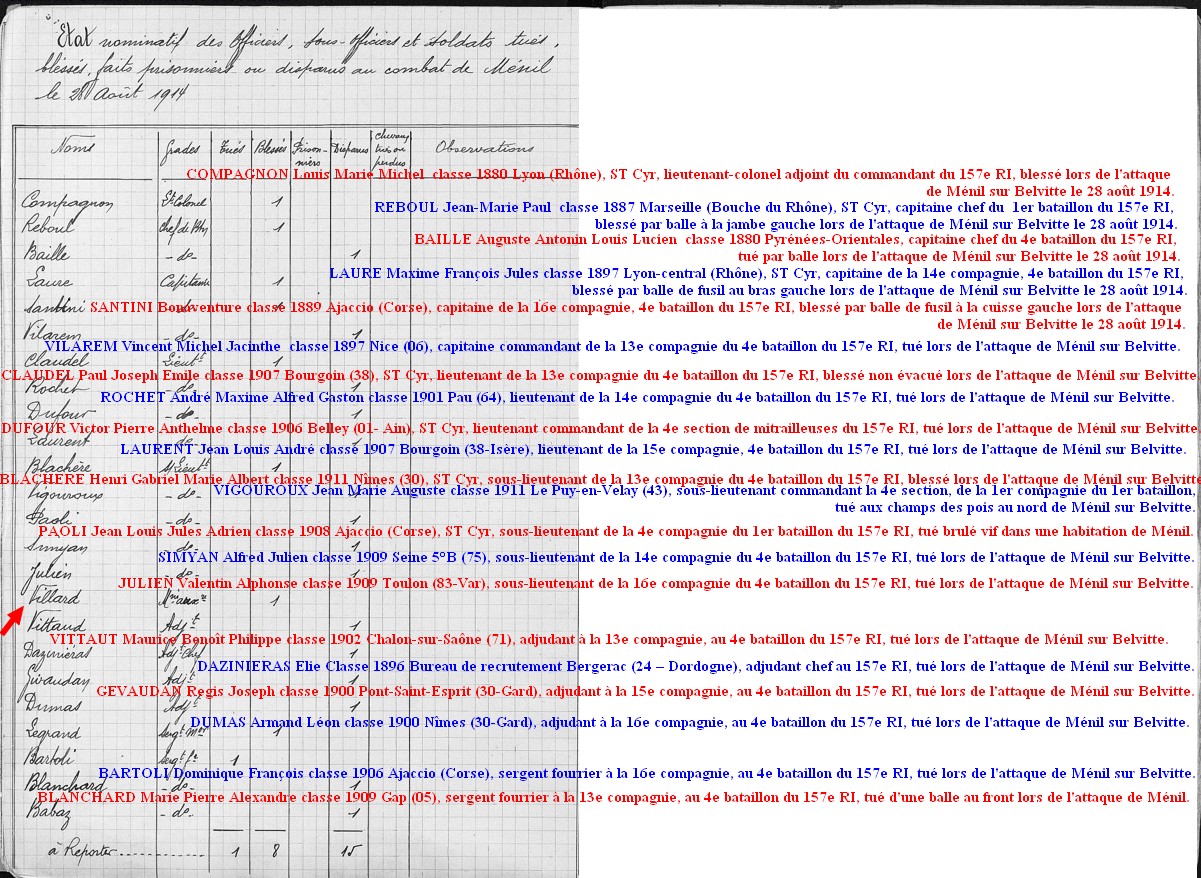 Etat nominatif des Officiers, Sous-Officiers et Soldats tués,
bléssés, faits prisonniers ou disparus au combat de Ménil
le 28 Août 1914
Noms Grades Tués Blessés Prison-niers Disparus Chevaux tués ou perdus Observations
COMPAGNON Louis Marie Michel classe 1880 Lyon (Rhône), ST Cyr, lieutenant-colonel adjoint du commandant du 157e RI, blessé lors de l'attaque
de Ménil sur Belvitte le 28 août 1914.
Compagnon Lt Colonel 1
REBOUL Jean-Marie Paul classe 1887 Marseille (Bouche du Rhône), ST Cyr, capitaine chef du 1er bataillon du 157e RI,
blessé par balle à la jambe gauche lors de l'attaque de Ménil sur Belvitte le 28 août 1914.
Reboul Chef de Btn 1
BAILLE Auguste Antonin Louis Lucien classe 1880 Pyrénées-Orientales, capitaine chef du 4e bataillon du 157e RI,
tué par balle lors de l'attaque de Ménil sur Belvitte le 28 août 1914.
Baille - do - 1
LAURE Maxime François Jules classe 1897 Lyon-central (Rhône), ST Cyr, capitaine de la 14e compagnie, 4e bataillon du 157e RI,
blessé par balle de fusil au bras gauche lors de l'attaque de Ménil sur Belvitte le 28 août 1914.
Laure Capitaine 1
Santini - do - 1
SANTINI Bonaventure classe 1889 Ajaccio (Corse), capitaine de la 16e compagnie, 4e bataillon du 157e RI, blessé par balle de fusil à la cuisse gauche lors de l'attaque
de Ménil sur Belvitte le 28 août 1914.
Vilarem - do - 1
VILAREM Vincent Michel Jacinthe classe 1897 Nice (06), capitaine commandant de la 13e compagnie du 4e bataillon du 157e RI, tué lors de l'attaque de Ménil sur Belvitte.
Claudel Lieutt 1
CLAUDEL Paul Joseph Emile classe 1907 Bourgoin (38), ST Cyr, lieutenant de la 13e compagnie du 4e bataillon du 157e RI, blessé non évacué lors de l'attaque de Ménil sur Belvitte
Rochet - do - 1
ROCHET André Maxime Alfred Gaston classe 1901 Pau (64), lieutenant de la 14e compagnie du 4e bataillon du 157e RI, tué lors de l'attaque de Ménil sur Belvitte.
Dufour - do - 1
DUFOUR Victor Pierre Anthelme classe 1906 Belley (01- Ain), ST Cyr, lieutenant commandant de la 4e section de mitrailleuses du 157e RI, tué lors de l'attaque de Ménil sur Belvitte
Laurent do 1
LAURENT Jean Louis André classe 1907 Bourgoin (38-Isère), lieutenant de la 15e compagnie, 4e bataillon du 157e RI, tué lors de l'attaque de Ménil sur Belvitte.
Blachère S/Lieutt 1
BLACHERE Henri Gabriel Marie Albert classe 1911 Nîmes (30), ST Cyr, sous-lieutenant de la 13e compagnie du 4e bataillon du 157e RI, blessé lors de l'attaque de Ménil sur Belvitte
Vigouroux - do - 1
VIGOUROUX Jean Marie Auguste classe 1911 Le Puy-en-Velay (43), sous-lieutenant commandant la 4e section, de la 1er compagnie du 1er bataillon,
tué aux champs des pois au nord de Ménil sur Belvitte.
Paoli - do - 1
PAOLI Jean Louis Jules Adrien classe 1908 Ajaccio (Corse), ST Cyr, sous-lieutenant de la 4e compagnie du 1er bataillon du 157e RI, tué brulé vif dans une habitation de Ménil.
Simyan - do - 1
SIMYAN Alfred Julien classe 1909 Seine 5°B (75), sous-lieutenant de la 14e compagnie du 4e bataillon du 157e RI, tué lors de l'attaque de Ménil sur Belvitte.
Julien - do - 1
JULIEN Valentin Alphonse classe 1909 Toulon (83-Var), sous-lieutenant de la 16e compagnie du 4e bataillon du 157e RI, tué lors de l'attaque de Ménil sur Belvitte.
Villard 1
Vittaud Adjt 1
VITTAUT Maurice Benoît Philippe classe 1902 Chalon-sur-Saône (71), adjudant à la 13e compagnie, au 4e bataillon du 157e RI, tué lors de l'attaque de Ménil sur Belvitte.
Daziniéras Adjt Chef 1
DAZINIERAS Elie Classe 1896 Bureau de recrutement Bergerac (24 – Dordogne), adjudant chef au 157e RI, tué lors de l'attaque de Ménil sur Belvitte.
Givaudan Adjt 1
GEVAUDAN Regis Joseph classe 1900 Pont-Saint-Esprit (30-Gard), adjudant à la 15e compagnie, au 4e bataillon du 157e RI, tué lors de l'attaque de Ménil sur Belvitte.
Dumas Adjt 1
DUMAS Armand Léon classe 1900 Nîmes (30-Gard), adjudant à la 16e compagnie, au 4e bataillon du 157e RI, tué lors de l'attaque de Ménil sur Belvitte.
Legrand Sergt Mor 1
Bartoli Sergt ft 1
BARTOLI Dominique François classe 1906 Ajaccio (Corse), sergent fourrier à la 16e compagnie, au 4e bataillon du 157e RI, tué lors de l'attaque de Ménil sur Belvitte.
Blanchard - do - 1
BLANCHARD Marie Pierre Alexandre classe 1909 Gap (05), sergent fourrier à la 13e compagnie, au 4e bataillon du 157e RI, tué d'une balle au front lors de l'attaque de Ménil.
Babaz - do - 1
à Reporter.............. 1 8 15